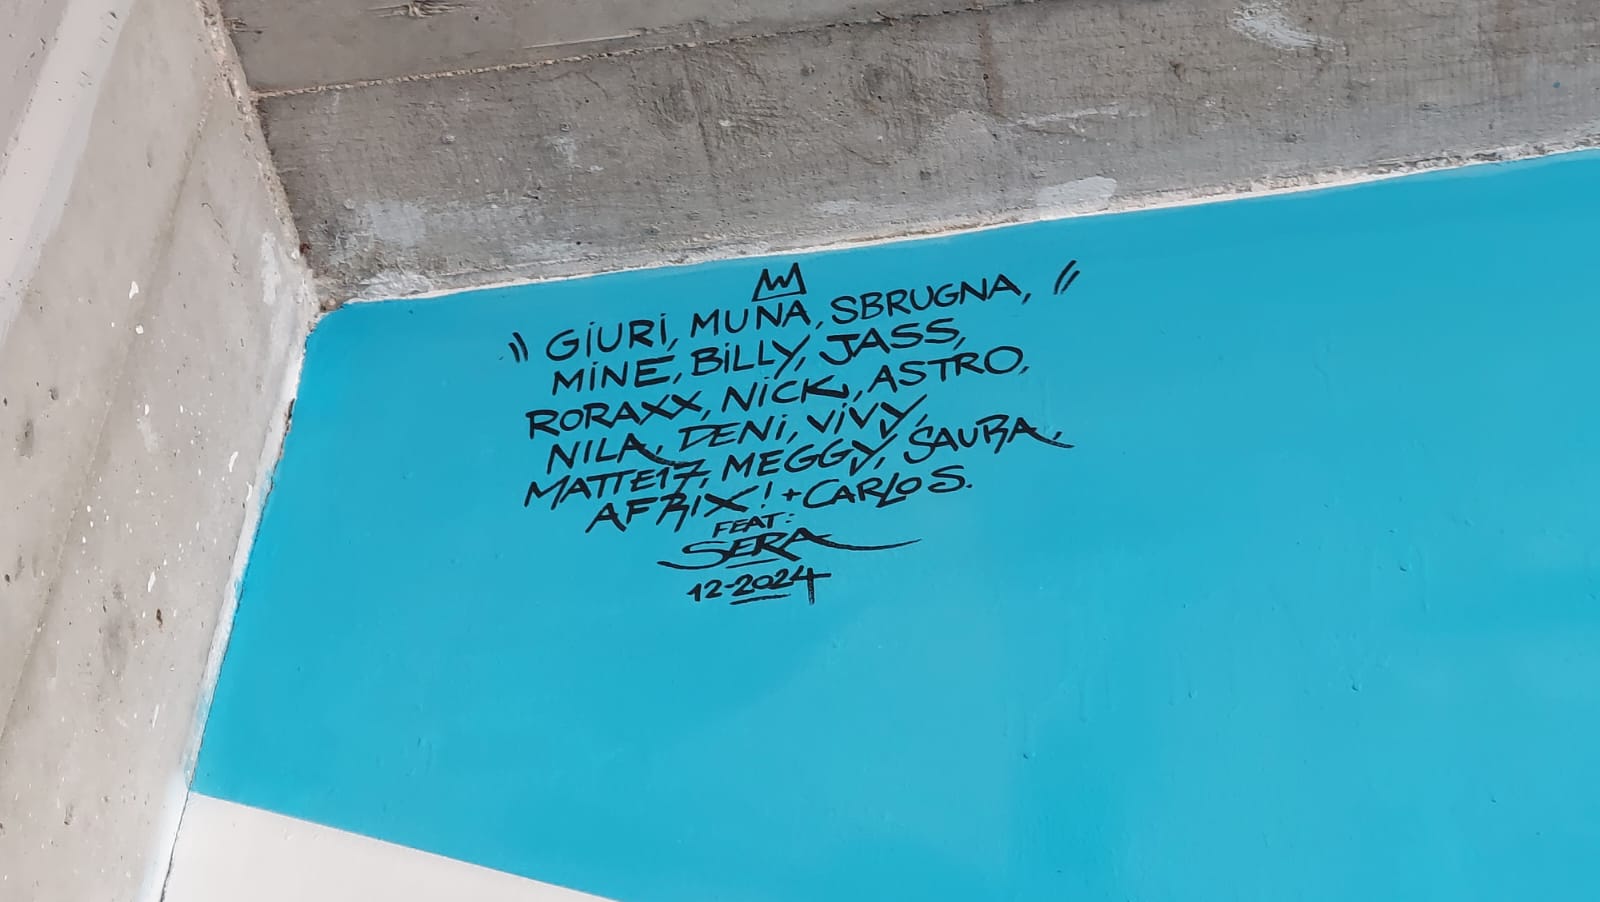 " GiURi, MUNA, SBRUGNA, "
MiNE, BiLLY, JASS,
RORAXX, NiCK, ASTRO,
NILA, DENi, ViVY,
MATTE17, MEGGY, SAURA,
AFRIX! + CARLO S.
FEAT:
SERA
12-2024